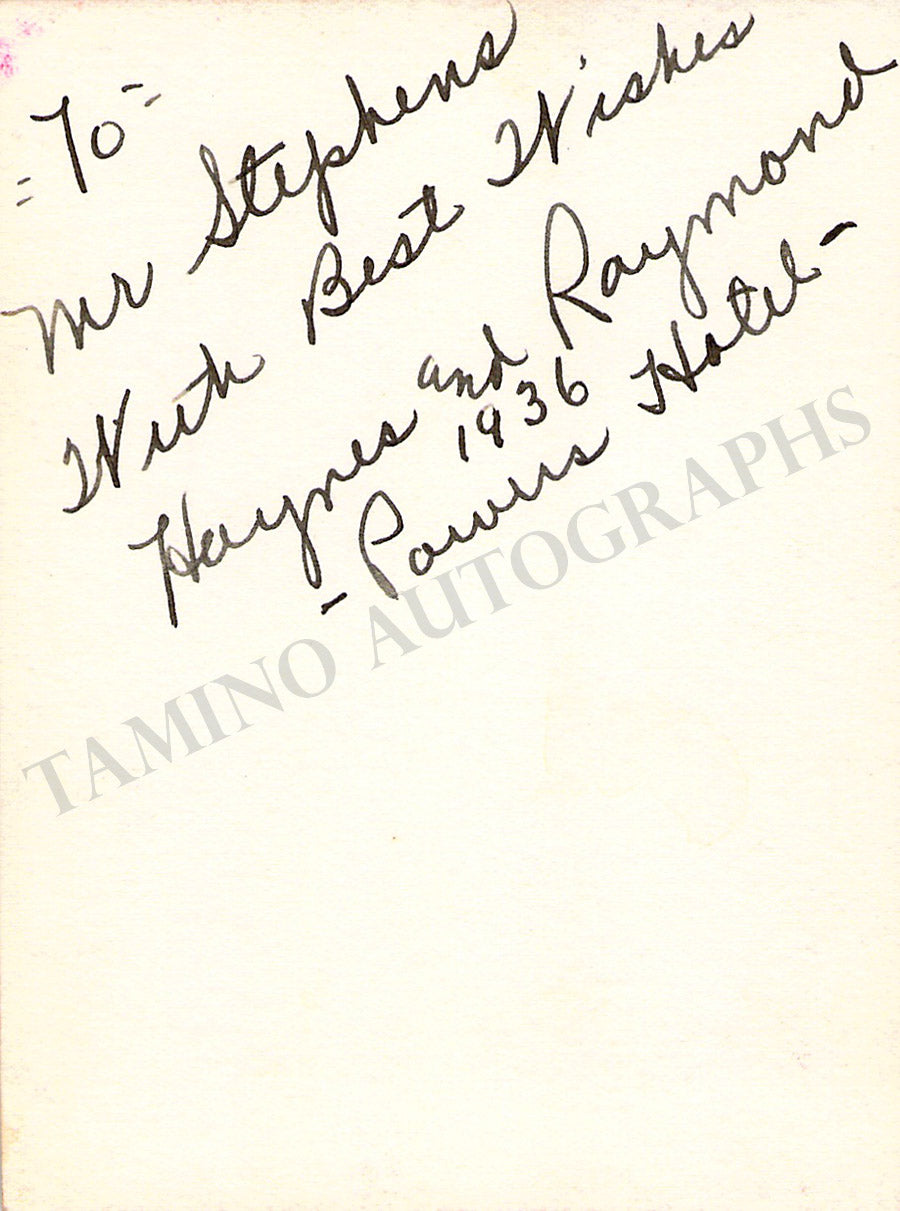 - To -
Mr Stephens
With Best Wishes
Haynes and Raymond
1936
- Powers Hotel -
TAMINO AUTOGRAPHS